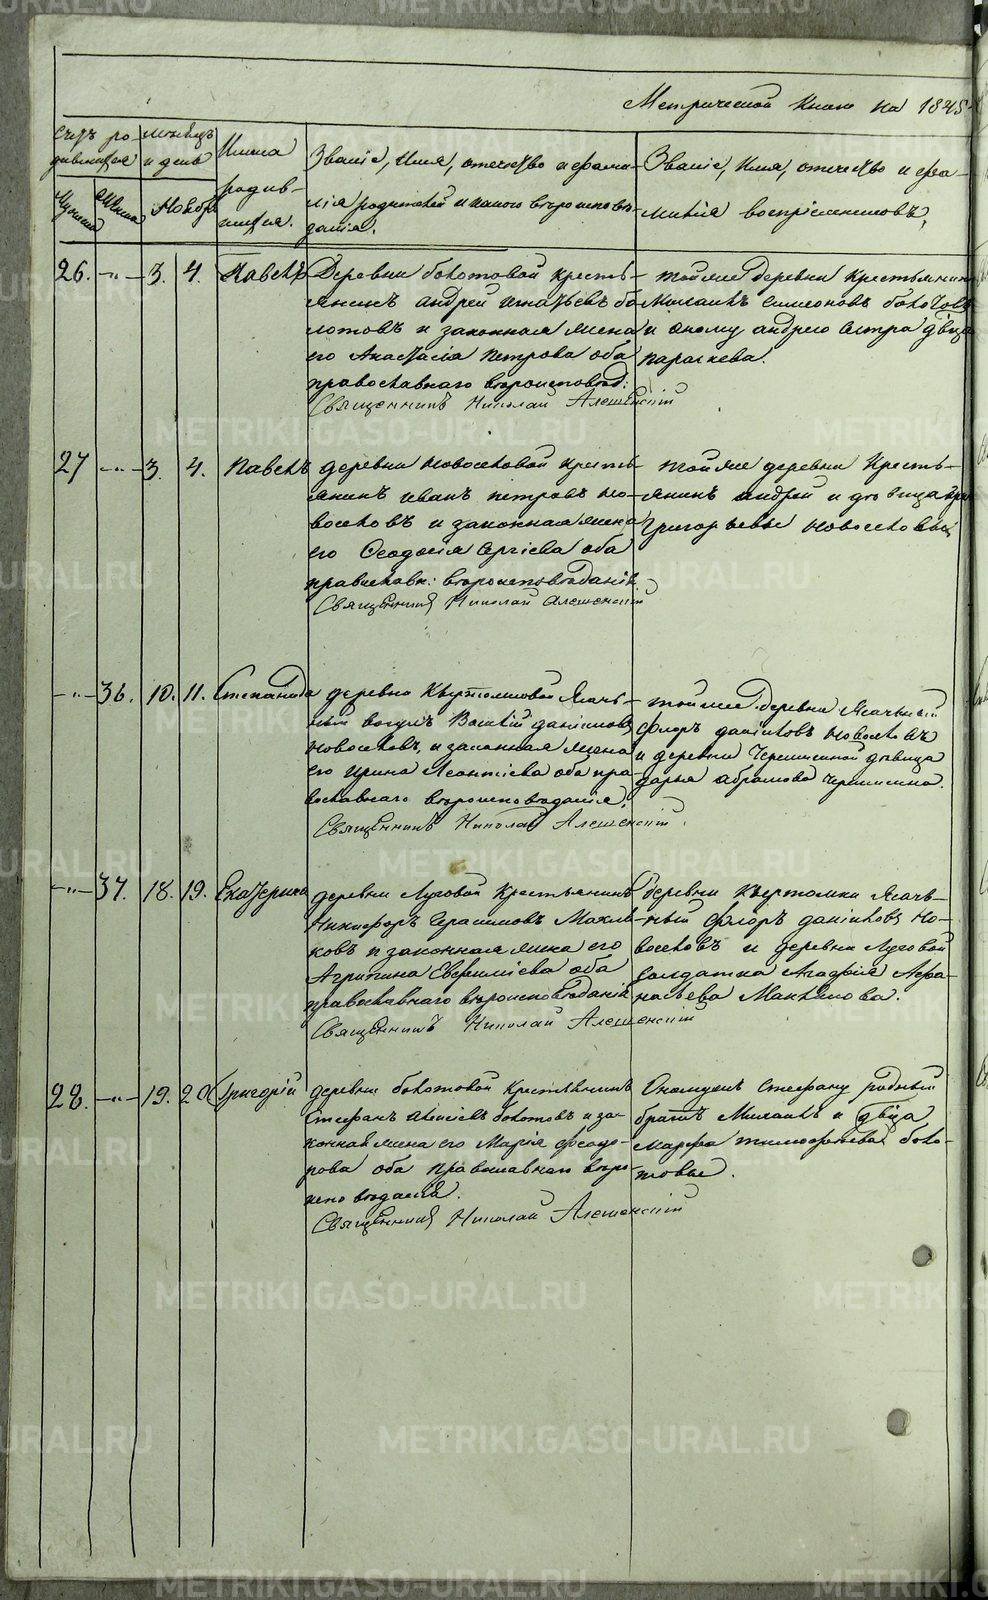 Метрической книги на 1845
Счетъ ро-
дившихся
Мѣсяцъ
и день
Имена
родив-
шихся.
Мужеска
Женска
Ноябрь
Званіе, Имя, отечество и фами-
лія родителей и какого вѣроисповѣ-
данія.
Званіе, Имя, отечество и фа-
милія воспріемниковъ.
26. —"— 3. 4. Павелъ
Деревни болотовой кресть-
янинъ андрей игнатьевъ бо-
лотовъ и законная жена
его Анастасія Петрова оба
православнаго вѣроисповѣд:
Священникъ Николай
тойже деревни крестьянинъ
Михаилъ симеоновъ болотовъ
и оному андрею сестра дѣвица
параскева.
27 —"— 3. 4. Павелъ
деревни Новоселовой кресть-
янинъ иванъ петровъ но-
воселовъ и законная жена
его Ѳеодосія Сергіева оба
православн: вѣроисповѣданія
Священникъ Николай
тойже деревни Кресть-
янинъ андрей и дѣвица
Григорьевы новоселовы
—"— 36. 10. 11. Степанида
деревни Ясачь-
ный вогулъ Василій даниловъ
Новоселовъ, и законная жена
его ирина Леонтіева оба пра-
вославнаго вѣроисповѣданія.
Священникъ Николай
тойже деревни Ясачьный
флоръ даниловъ Новоселовъ
и деревни дѣвица
дарья абрамова
—"— 37. 18. 19. Екатерина
деревни Луговой Крестьянинъ
Никифоръ Герасимовъ
и законная жена его
Агрипина оба
православнаго вѣроисповѣданія
Священникъ Николай
деревни Ясачь-
ный флоръ даниловъ Но-
воселовъ и деревни Луговой
солдатка Агафія Афа-
насьева
28. —"— 19. 20 Григорій
деревни болотовой крестьянинъ
Стефанъ болотовъ и за-
конная жена его Марія феодо-
рова оба православнаго вѣро-
исповѣданія.
Священникъ Николай
Ономужъ Стефану родный
братъ Михаилъ и дѣвица
Марфа тимофеева боло-
товы.
METRIKI.GASO-URAL.RU